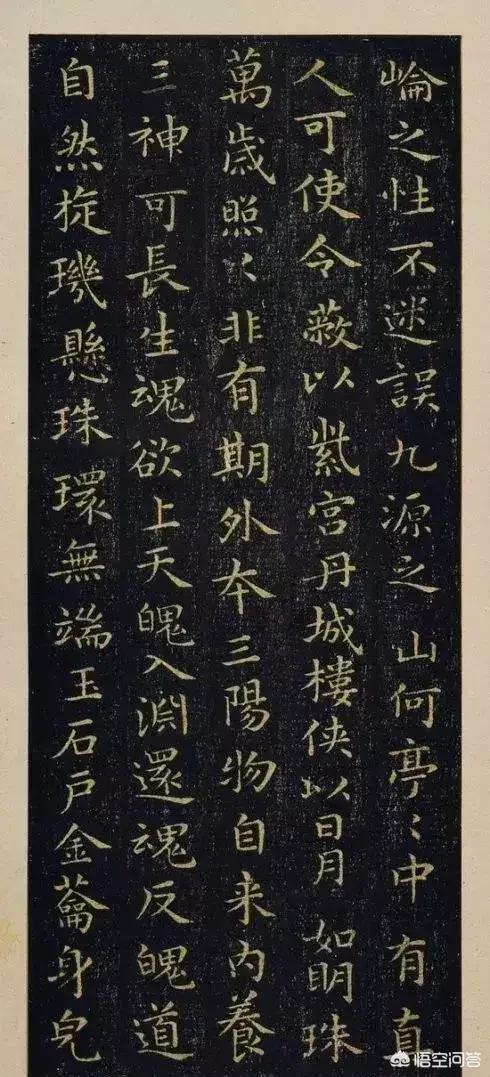 崘之性不迷誤九源之山何亭〻中有真
人可使令蔽以紫宫丹城樓侠以日月如明珠
萬歲照〻非有期外本三陽物自来内養
三神可長生魂欲上天魄入淵還魂反魄道
自然旋璣懸珠環無端玉石戶金籥身皃
悟空问答